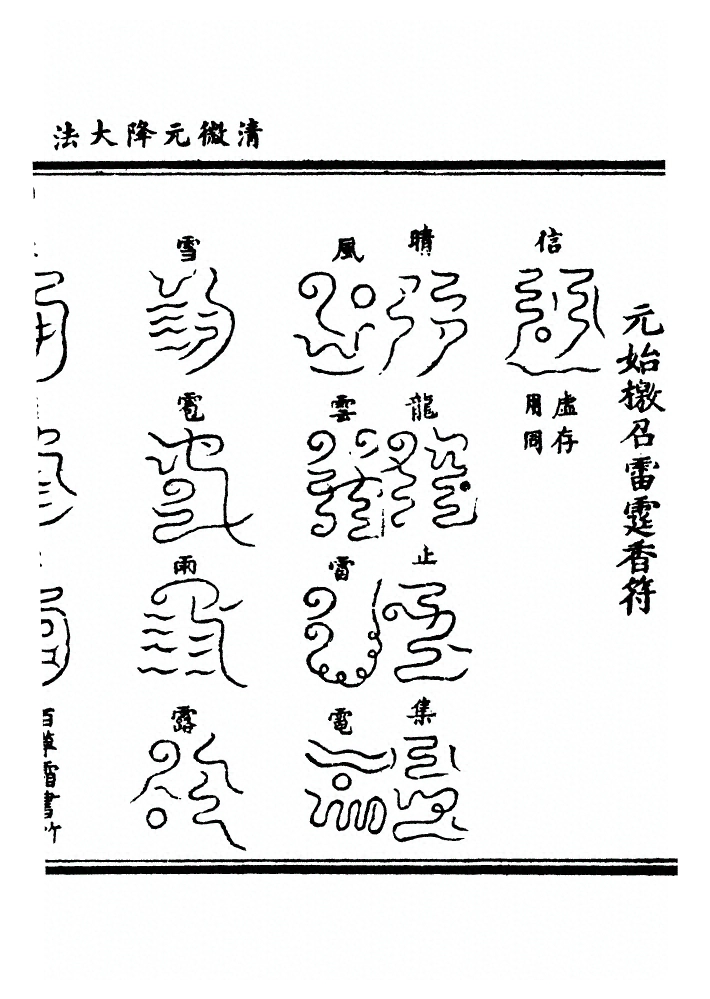 清微元降大法
元始檄召雷霆香符
信
虛存
用同
晴
龍
止
集
風
雲
雷
電
雪
雹
雨
露
百草霜書